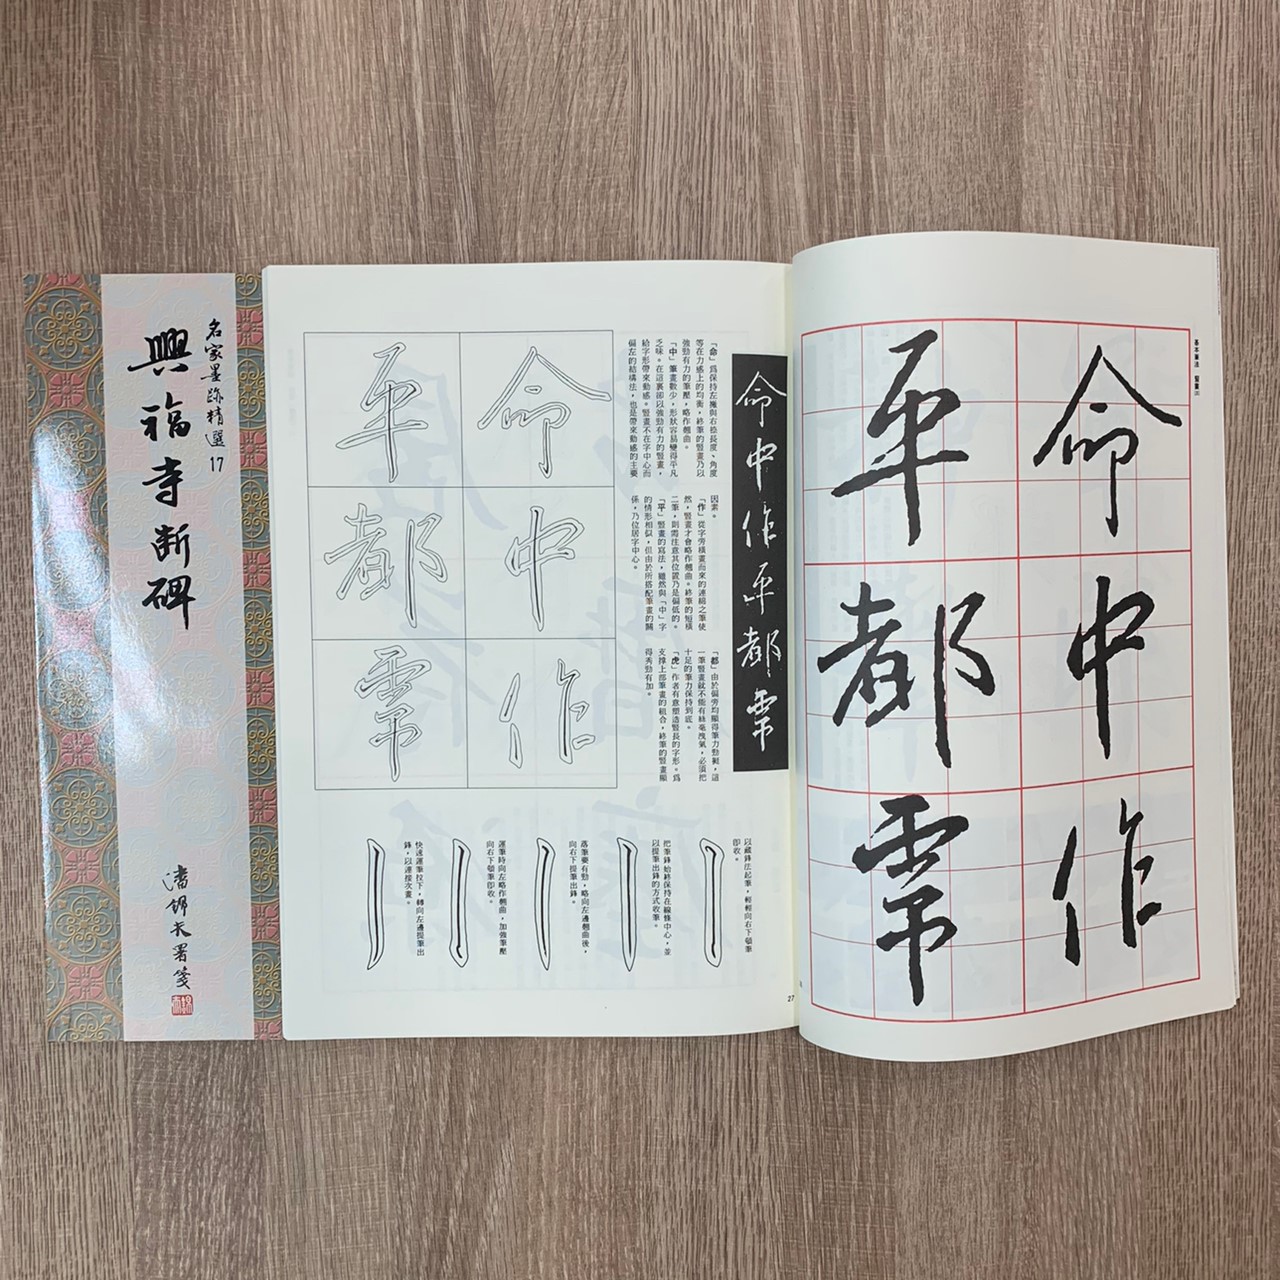 名家墨跡精選17
興福寺断碑
潘錦夫署箋
基本筆法 豎畫
命中作
平都雫
命中作平都雫
「命」為保持左撇與右捺長度、角度
等在力感上的均衡，終筆的豎畫乃以
強勁有力的筆壓，略作翹曲。
「中」筆畫數少，形狀容易變得平凡
乏味。在這裏卻以強勁有力的豎畫，
給字形帶來動感。豎畫不在字中心而
偏左的結構法，也是帶來動感的主要
因素。
「作」從字旁橫畫而來的連綿之筆使
然，豎畫才會略作翹曲。終筆的短橫
二筆，則需注意其位置乃是偏低的。
「平」豎畫的寫法，雖然與「中」字
的情形相似，但由於所搭配筆畫的關
係，乃位居字中心。
「都」由於偏旁均顯得筆力勁挺，這
一筆豎畫就不能有絲毫洩氣，必須把
十足的筆力保持到底。
「虎」作者有意塑造豎長的字形。為
支撐上部筆畫的組合，終筆的豎畫顯
得秀勁有加。
命中作
平都雫
以藏鋒法起筆，輕輕向右下頓筆
即收。
把筆鋒始終保持在線條中心，並
以提筆出鋒的方式收筆。
落筆要有勁，略向左邊翹曲後，
向右下提筆出鋒。
運筆時向左略作翹曲，加強筆壓
向右下頓筆即收。
快速運筆拉下，轉向左邊提筆出
鋒，以連接次畫。
27